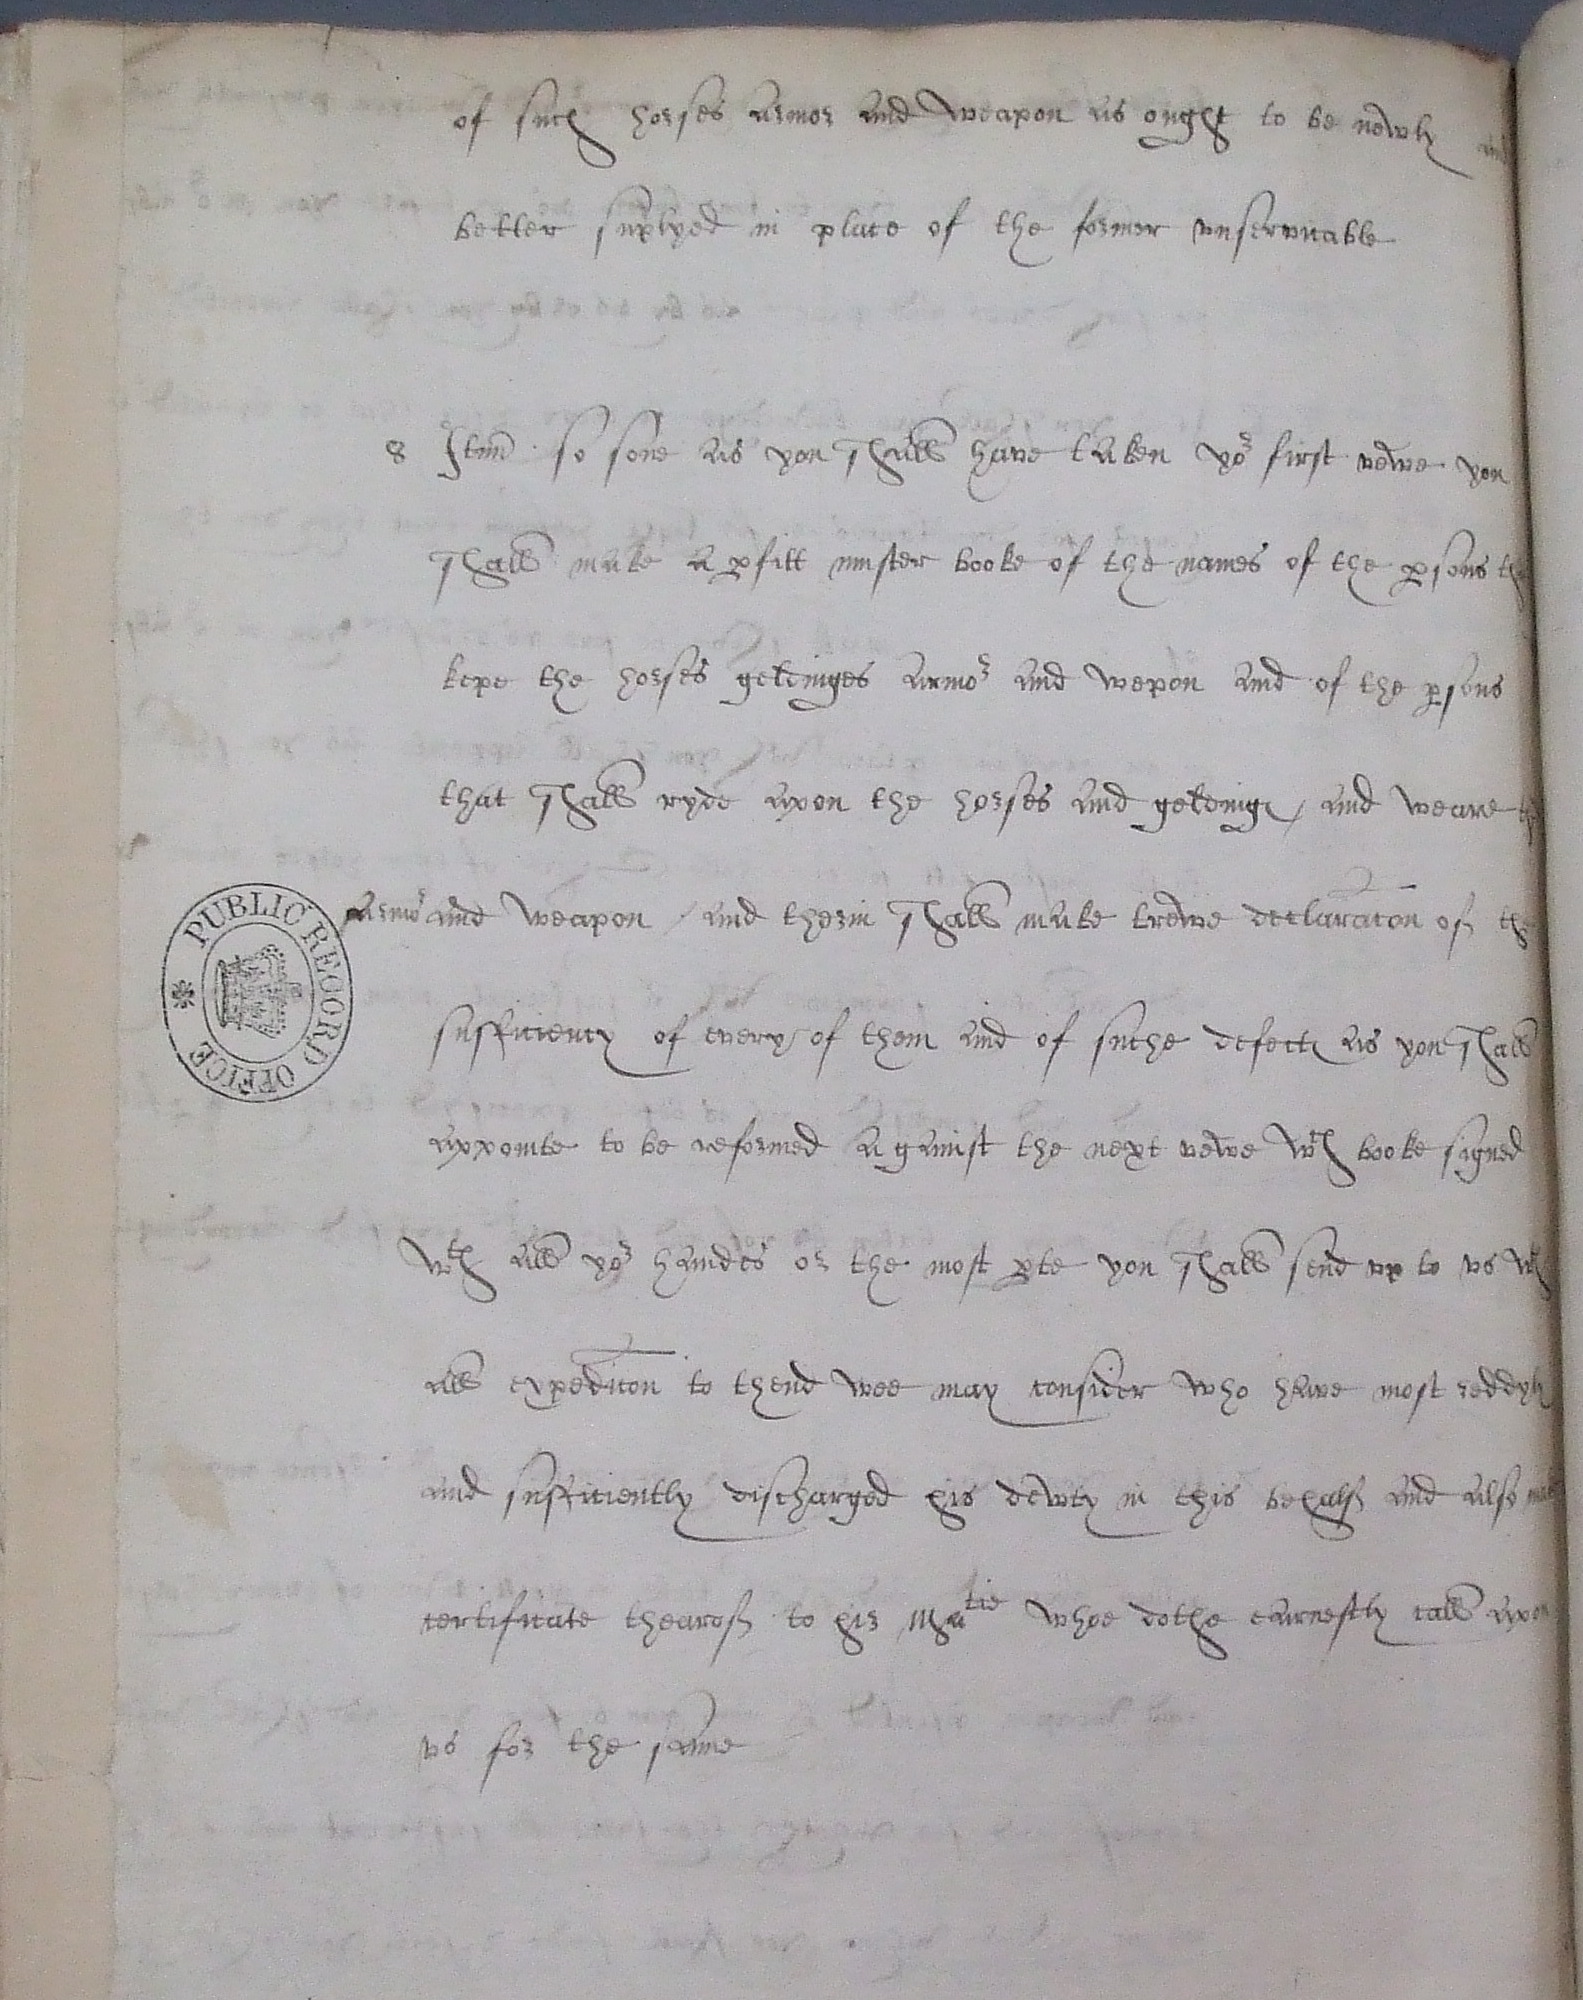 of such horses armor and weapon as ought to be newly and
better suplyed in place of the former vnserviable
8 Itm so sone as you shall have taken yor first vewe you
shall make a pfitt muster booke of the names of the psons tha
kepe the horses geldinges armor and wepon and of the psons
that shall ryde vpon the horses and gelding and weare th
armor and weapon / and therin shall make trewe declaracon of the
sufficiency of every of them and of suche defect as you shall
appointe to be reformed against the next vewe wch booke signed
wth all yor handes or the most pte you shall send vp to vs wth
all expedicon to thend wee may consider who have most reddyly
and sufficiently discharged his dewty in this behalf and also make
certificate thearof to hir Matie whoe dothe earnestly call vpon
vs for the same
PUBLIC RECORD OFFICE